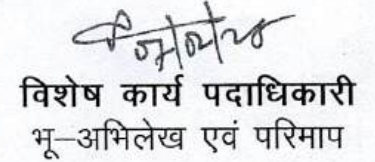 विशेष कार्य पदाधिकारी
भू–अभिलेख एवं परिमाप